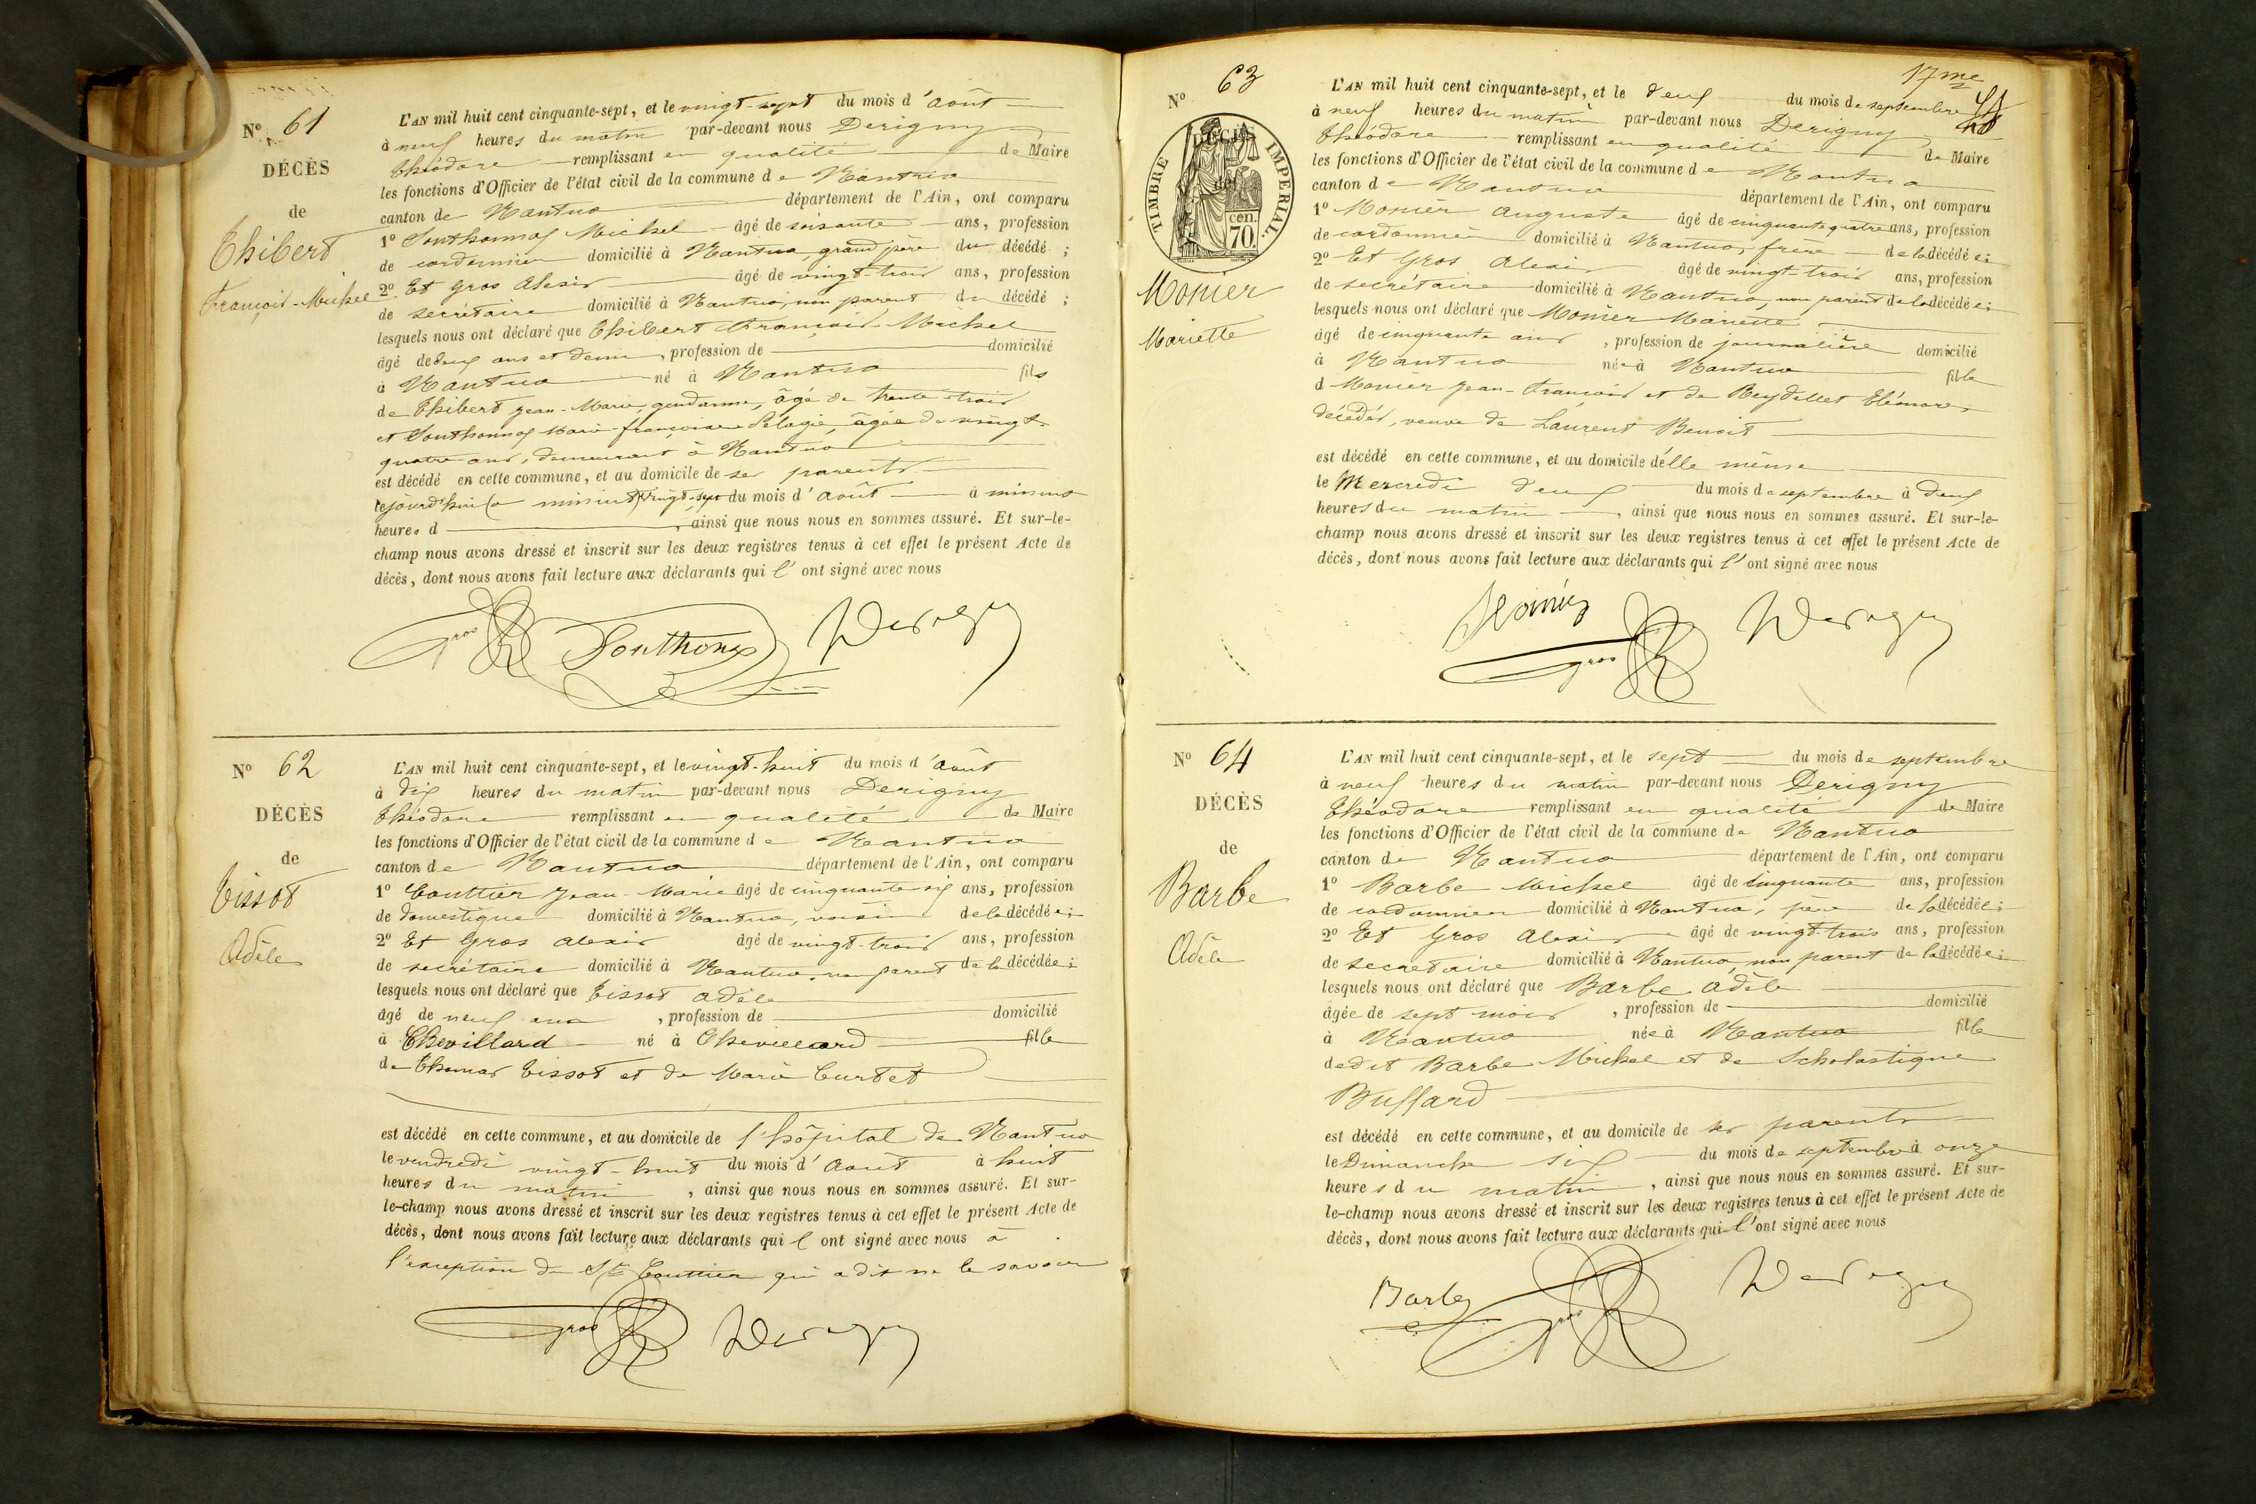 N° 61
DÉCÈS
de
Thibert
François-Michel
L'AN mil huit cent cinquante-sept, et le vingt-sept du mois d'août
à neuf heures du matin par-devant nous Derigny
Théodore remplissant en qualité de Maire
les fonctions d'Officier de l'état civil de la commune de Nantua
canton de Nantua département de l'Ain, ont comparu
1° Southonnax Michel âgé de soixante ans, profession
de cordonnier domicilié à Nantua, grand père du décédé ;
2° Et Gros Alexis âgé de vingt-trois ans, profession
de secrétaire domicilié à Nantua, non parent du décédé ;
lesquels nous ont déclaré que Thibert François-Michel
âgé de deux ans et demi, profession de domicilié
à Nantua né à Nantua fils
de Thibert Jean-Marie, gendarme, âgé de trente-trois
et Southonnax Marie-françoise Pélagie, âgée de vingt-
quatre ans, demeurant à Nantua
est décédé en cette commune, et au domicile de ses parents
le jourd'hui (à minuit) vingt-sept du mois d'août à minuit
heures d , ainsi que nous nous en sommes assuré. Et sur-le-
champ nous avons dressé et inscrit sur les deux registres tenus à cet effet le présent Acte de
décès, dont nous avons fait lecture aux déclarants qui l'ont signé avec nous
Gros Southonnax Derigny
N° 62
DÉCÈS
de
Tissot
Adèle
L'AN mil huit cent cinquante-sept, et le vingt-huit du mois d'août
à dix heures du matin par-devant nous Derigny
Théodore remplissant en qualité de Maire
les fonctions d'Officier de l'état civil de la commune de Nantua
canton de Nantua département de l'Ain, ont comparu
1° Couttier Jean-Marie âgé de cinquante-six ans, profession
de domestique domicilié à Nantua, voisin de la décédée ;
2° Et Gros Alexis âgé de vingt-trois ans, profession
de secrétaire domicilié à Nantua, non parent de la décédée ;
lesquels nous ont déclaré que Tissot Adèle
âgé de neuf ans , profession de domicilié
à Chevillard né à Chevillard fille
de Thomas Tissot et de Marie Curtet
est décédé en cette commune, et au domicile de l'hôpital de Nantua
le vendredi vingt-huit du mois d'août à huit
heures du matin , ainsi que nous nous en sommes assuré. Et sur-
le-champ nous avons dressé et inscrit sur les deux registres tenus à cet effet le présent Acte de
décès, dont nous avons fait lecture aux déclarants qui l'ont signé avec nous à
l'exception du Sr Couttier qui a dit ne le savoir
Gros Derigny
17me
N° 63
DÉCÈS
de
TIMBRE IMPERIAL.
70 cen.
Monier
Mariette
L'AN mil huit cent cinquante-sept, et le deux du mois de septembre
à neuf heures du matin par-devant nous Derigny
Théodore remplissant en qualité de Maire
les fonctions d'Officier de l'état civil de la commune de Nantua
canton de Nantua département de l'Ain, ont comparu
1° Monier Auguste âgé de cinquante quatre ans, profession
de cordonnier domicilié à Nantua, frère de la décédée ;
2° Et Gros Alexis âgé de vingt-trois ans, profession
de secrétaire domicilié à Nantua, non parent de la décédée ;
lesquels nous ont déclaré que Monier Mariette
âgé de cinquante ans , profession de journalière domicilié
à Nantua née à Nantua fille
d Monier Jean-François et de Reydellet Eléonore
décédés, veuve de Laurent Benoit
est décédé en cette commune, et au domicile d'elle même
le Mercredi deux du mois de septembre à deux
heures du matin , ainsi que nous nous en sommes assuré. Et sur-le-
champ nous avons dressé et inscrit sur les deux registres tenus à cet effet le présent Acte de
décès, dont nous avons fait lecture aux déclarants qui l'ont signé avec nous
Monier Gros Derigny
N° 64
DÉCÈS
de
Barbe
Adèle
L'AN mil huit cent cinquante-sept, et le sept du mois de septembre
à neuf heures du matin par-devant nous Derigny
Théodore remplissant en qualité de Maire
les fonctions d'Officier de l'état civil de la commune de Nantua
canton de Nantua département de l'Ain, ont comparu
1° Barbe Michel âgé de cinquante ans, profession
de cordonnier domicilié à Nantua, père de la décédée ;
2° Et Gros Alexis âgé de vingt-trois ans, profession
de secrétaire domicilié à Nantua, non parent de la décédée ;
lesquels nous ont déclaré que Barbe Adèle
âgée de sept mois , profession de domicilié
à Nantua née à Nantua fille
de dit Barbe Michel et de Scholastique
Buffard
est décédé en cette commune, et au domicile de ses parents
le Dimanche six du mois de septembre à onze
heures du matin , ainsi que nous nous en sommes assuré. Et sur-
le-champ nous avons dressé et inscrit sur les deux registres tenus à cet effet le présent Acte de
décès, dont nous avons fait lecture aux déclarants qui l'ont signé avec nous
Barbe Gros Derigny